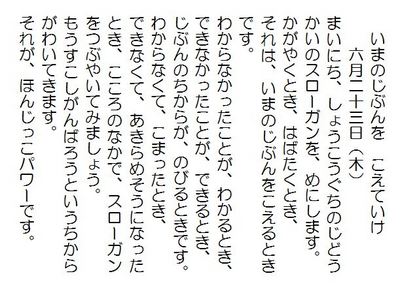 いまのじぶんを　こえていけ
六月二十三日（木）
まいにち、しょうこうぐちのじどう
かいのスローガンを、めにします。
かがやくとき、はばたくとき、
それは、いまのじぶんをこえるとき
です。
わからなかったことが、わかるとき、
できなかったことが、できるとき、
じぶんのちからが、のびるときです。
わからなくて、こまったとき、
できなくて、あきらめそうになった
とき、こころのなかで、スローガン
をつぶやいてみましょう。
もうすこしがんばろうというちから
がわいてきます。
それが、ほんじっこパワーです。